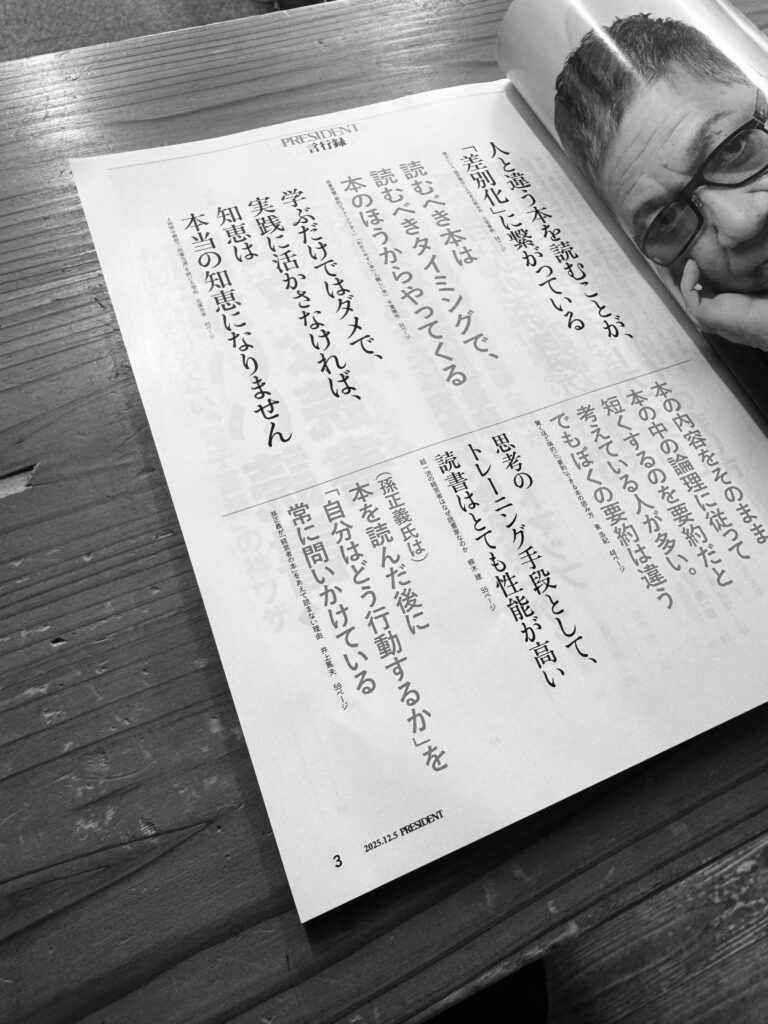 PRESIDENT
言行録
人と違う本を読むことが、
「差別化」に繋がっている
読むべき本は
読むべきタイミングで、
本のほうからやってくる
学ぶだけではダメで、
実践に活かさなければ、
知恵は
本当の知恵になりません
本の内容をそのまま
本の中の論理に従って
短くするのを要約だと
考えている人が多い。
でもぼくの要約は違う
思考の
トレーニング手段として、
読書はとても性能が高い
超一流の経営者はなぜ読書家なのか 楠木建 55ページ
(孫正義氏は)
本を読んだ後に
「自分はどう行動するか」を
常に問いかけている
孫正義が「経営者の本」をあえて読まない理由 井上篤夫 59ページ
3
2025.12.5 PRESIDENT